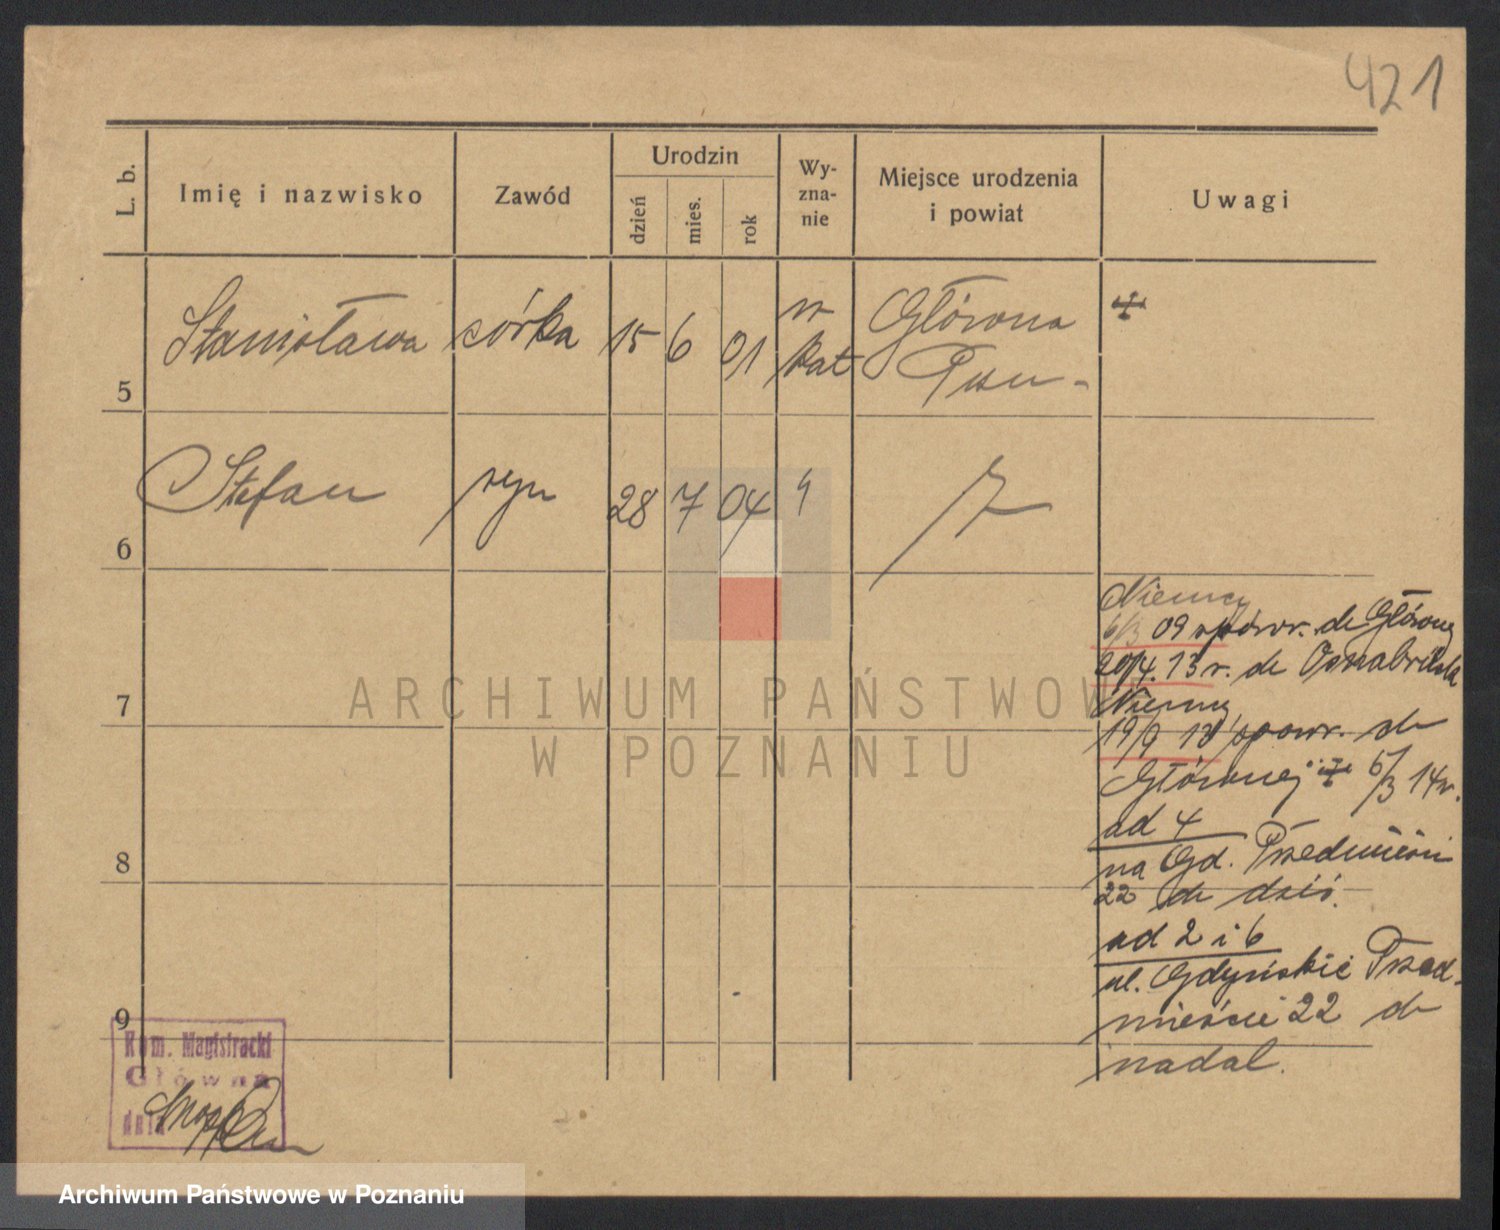 421
L. b.
Imię i nazwisko
Zawód
Urodzin
dzień
mies.
rok
Wy-
zna-
nie
Miejsce urodzenia
i powiat
Uwagi
5
Stanisława
córka
15
6
01
rz
kat
Główna
Pozn-
6
Stefan
syn
28
7
04
"
7
8
9
Niemcy
6/3 09 spowr. do Główny
20/4. 13 r. do Osnabrück
Niemcy
19/9 13 spowr. do
Głównej 6/3 14 r.
ad 4
na Gd. Przedmieści
22 do dziś.
ad 2 i 6
ul. Gdyńskie Przed-
mieście 22 do
nadal.
Kom. Magistracki
Główna
dnia
ARCHIWUM PAŃSTWOWE
W POZNANIU
Archiwum Państwowe w Poznaniu